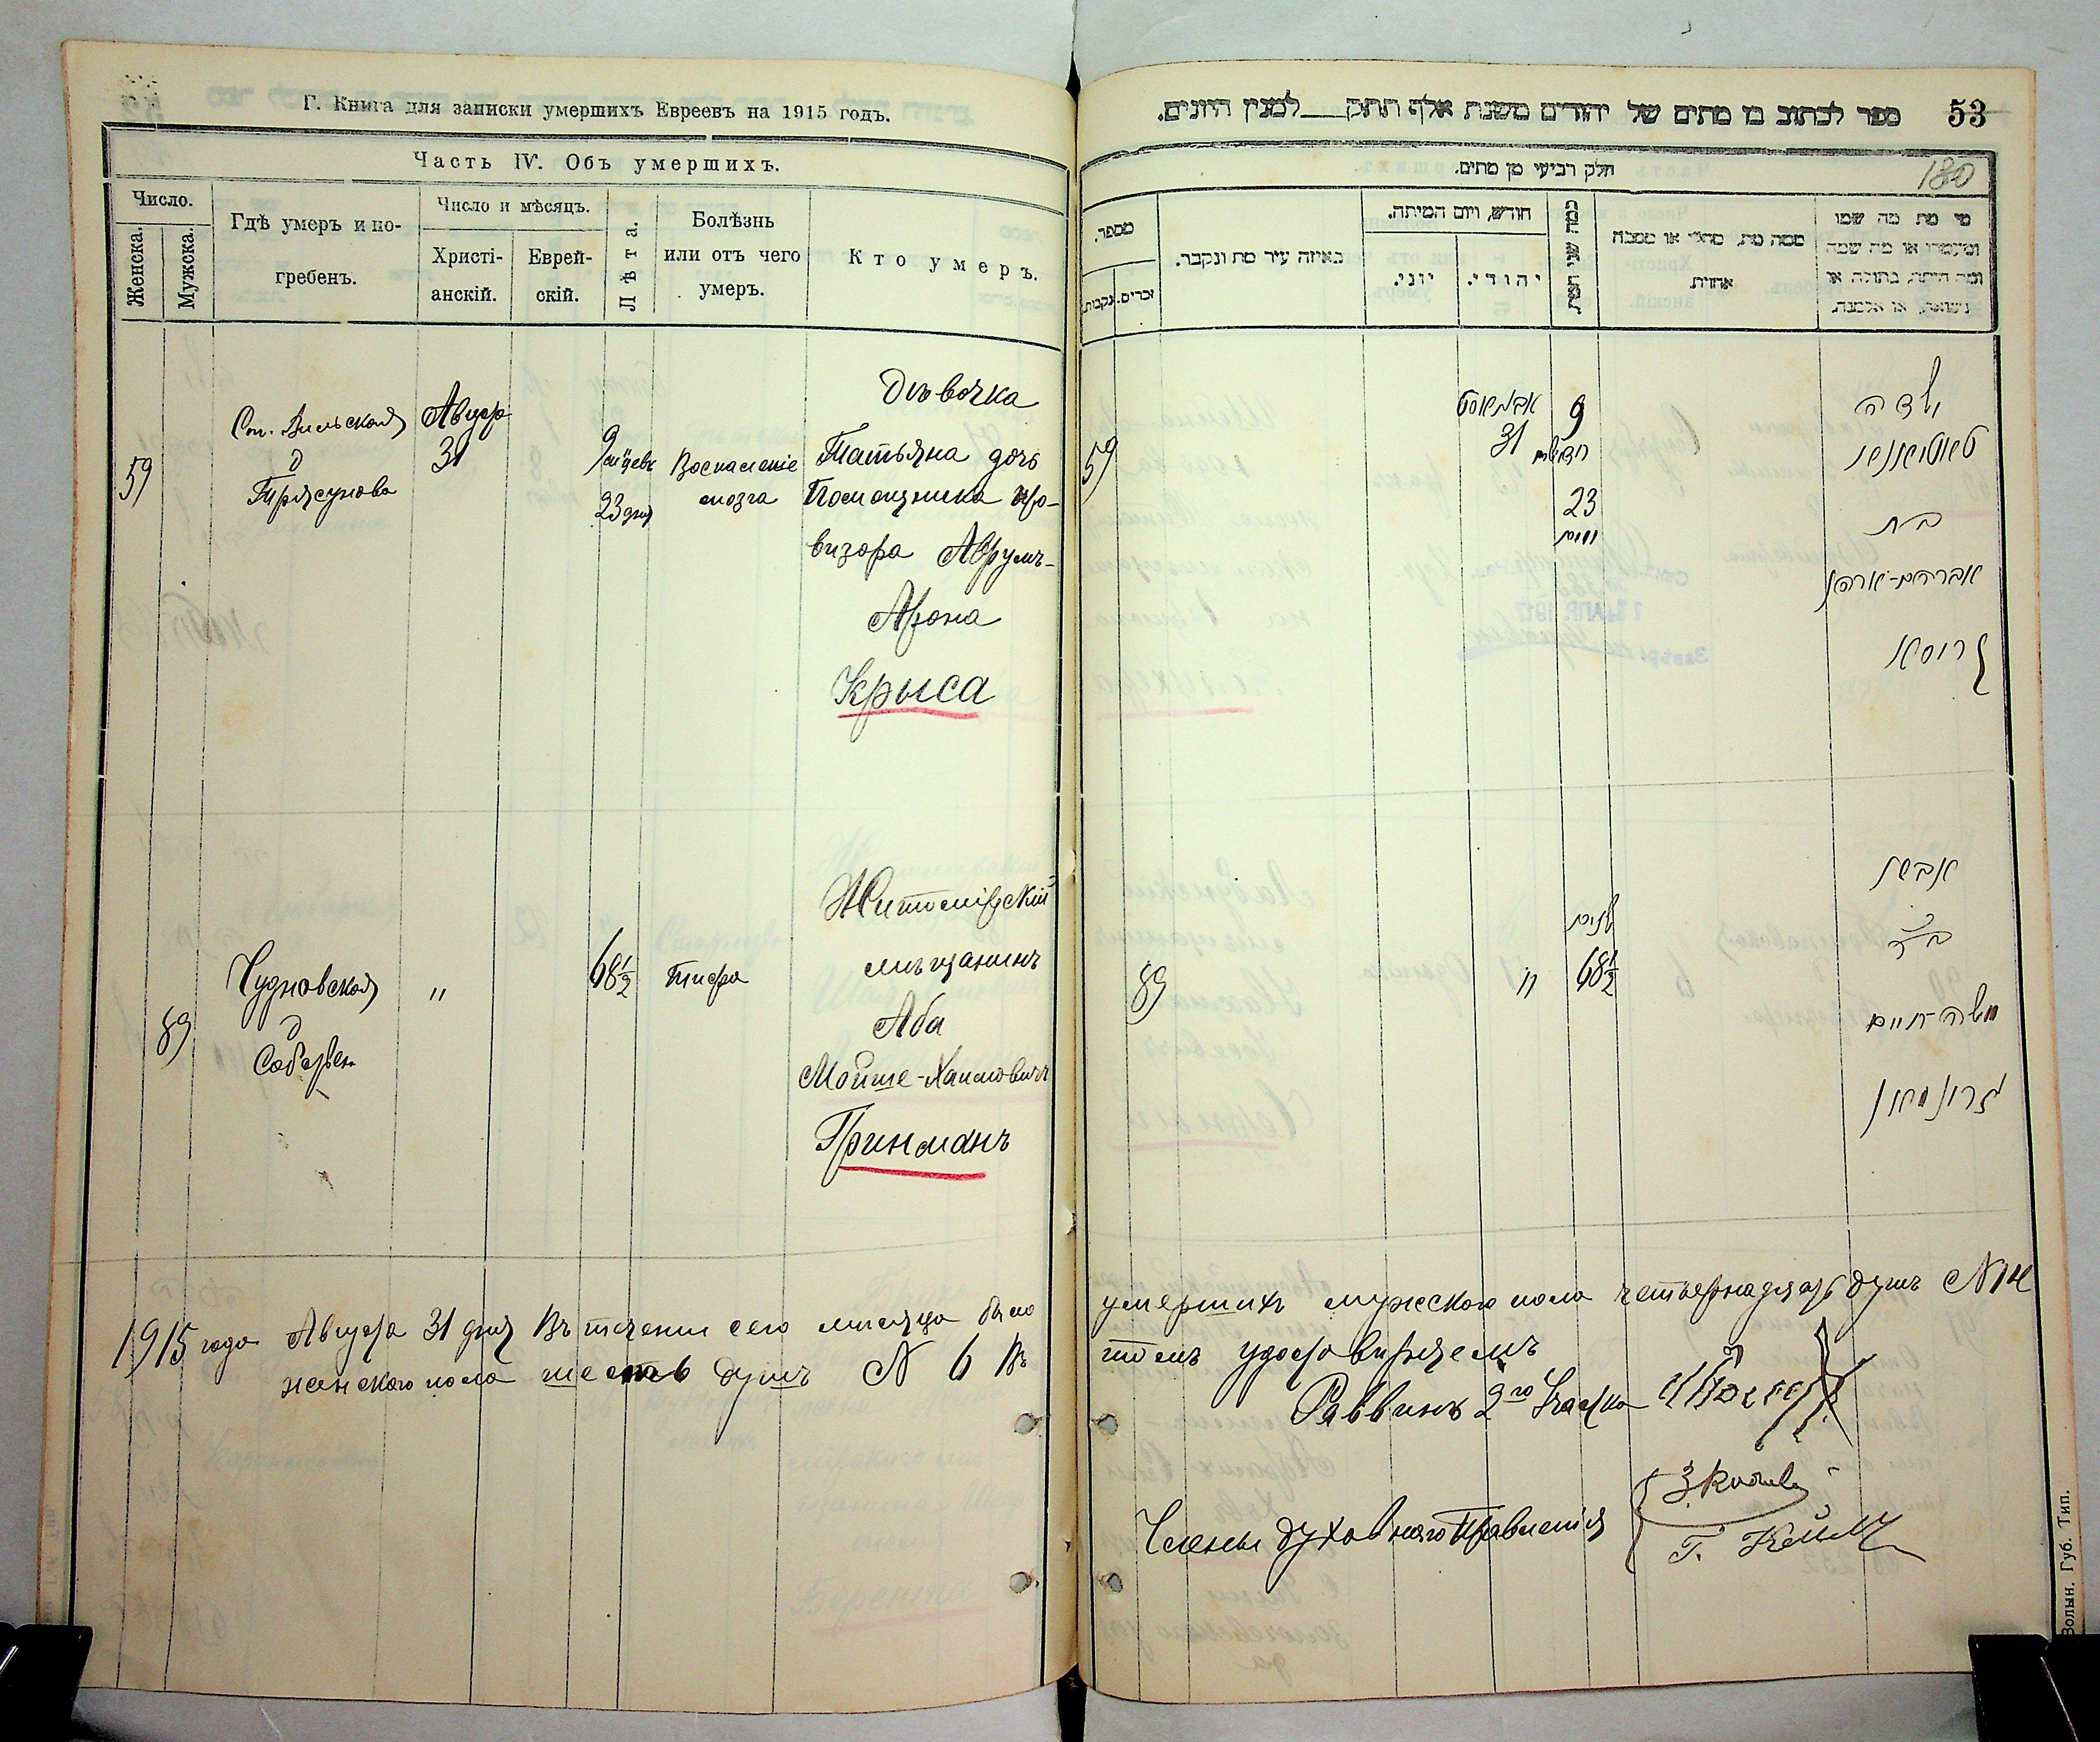 Г. Книга для записки умершихъ Евреевъ на 1915 годъ.
Часть IV. Объ умершихъ.
Число.
Женска.
Мужска.
Гдѣ умеръ и погребенъ.
Число и мѣсяцъ.
Христіанскій.
Еврейскій.
Лѣта.
Болѣзнь или отъ чего умеръ.
Кто умеръ.
59
Августа
31
9
23 дня
Воспаленіе
мозга
Дѣвочка
Татьяна дочь
Помощника про-
визора Аврумъ-
Арона
Крыса
89
Чудновской
"
68 1/2
Тифа
Житомірскій
мѣщанинъ
Аба
Мойше-Хаимовичъ
Гринманъ
1915 года Августа 31 дня Въ теченіи сего мѣсяца было
женского пола шесть душъ N 6 Въ
ספר לכתוב בו מתים של יהודים משנת אלף תתק__למנין היונים. 53
180
חלק רביעי מן מתים.
מספר.
זכרים.
נקבות.
באיזה עיר מת ונקבר.
חודש, ויום המיתה.
יוני.
יהודי.
כמה שני המת
ממה מת, מחלי או ממכה אחרת.
מי מת מה שמו
59
אבגאוסט
31
9
חדשים
23
ימים
ילדה
טאטיאנא
בת
אברהם-אהרן
קריסא
89
"
שנים
68 1/2
אבא
ב״ר
משה-חיים
גרינמאן
умершихъ мужского пола четырнадцать душъ N 14
томъ удостовѣряемъ
Раввинъ 2го Участка
Члены духовнаго Правленія
Волын. Губ. Тип.